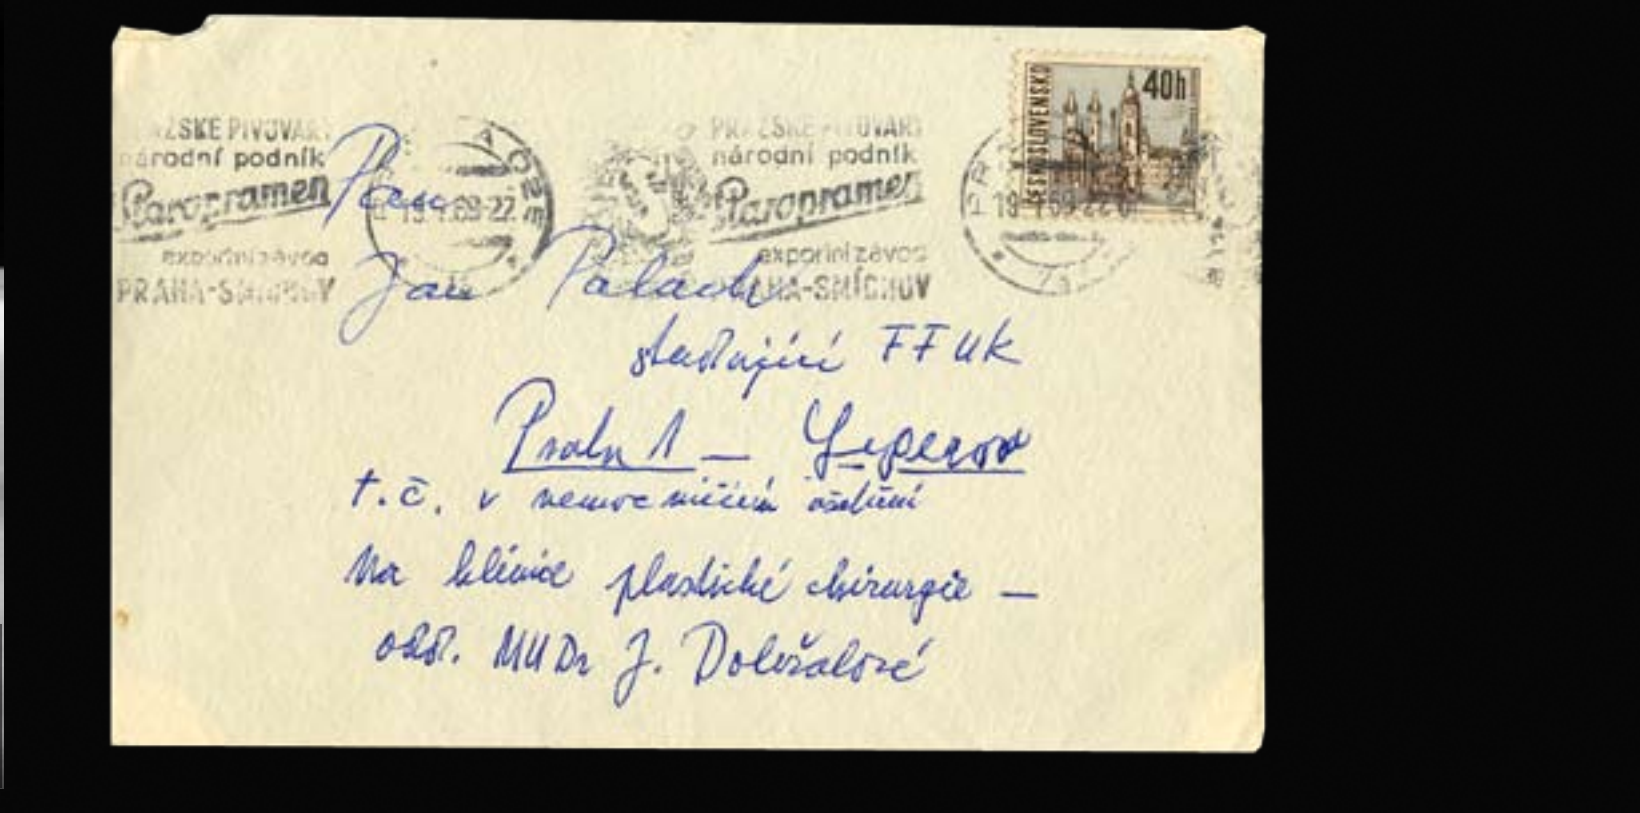 PRAŽSKÉ PIVOVARY
národní podnik
Staropramen
exportní závod
PRAHA-SMÍCHOV
19.1.69-22
PRAŽSKÉ PIVOVARY
národní podnik
Staropramen
exportní závod
PRAHA-SMÍCHOV
ČESKOSLOVENSKO
40h
Pan
Jan Palach
studující FFUK
Praha 1 –
t.č. v nemocničním ošetření
Na klinice plastické chirurgie –
odd. MUDr J. Doležalové